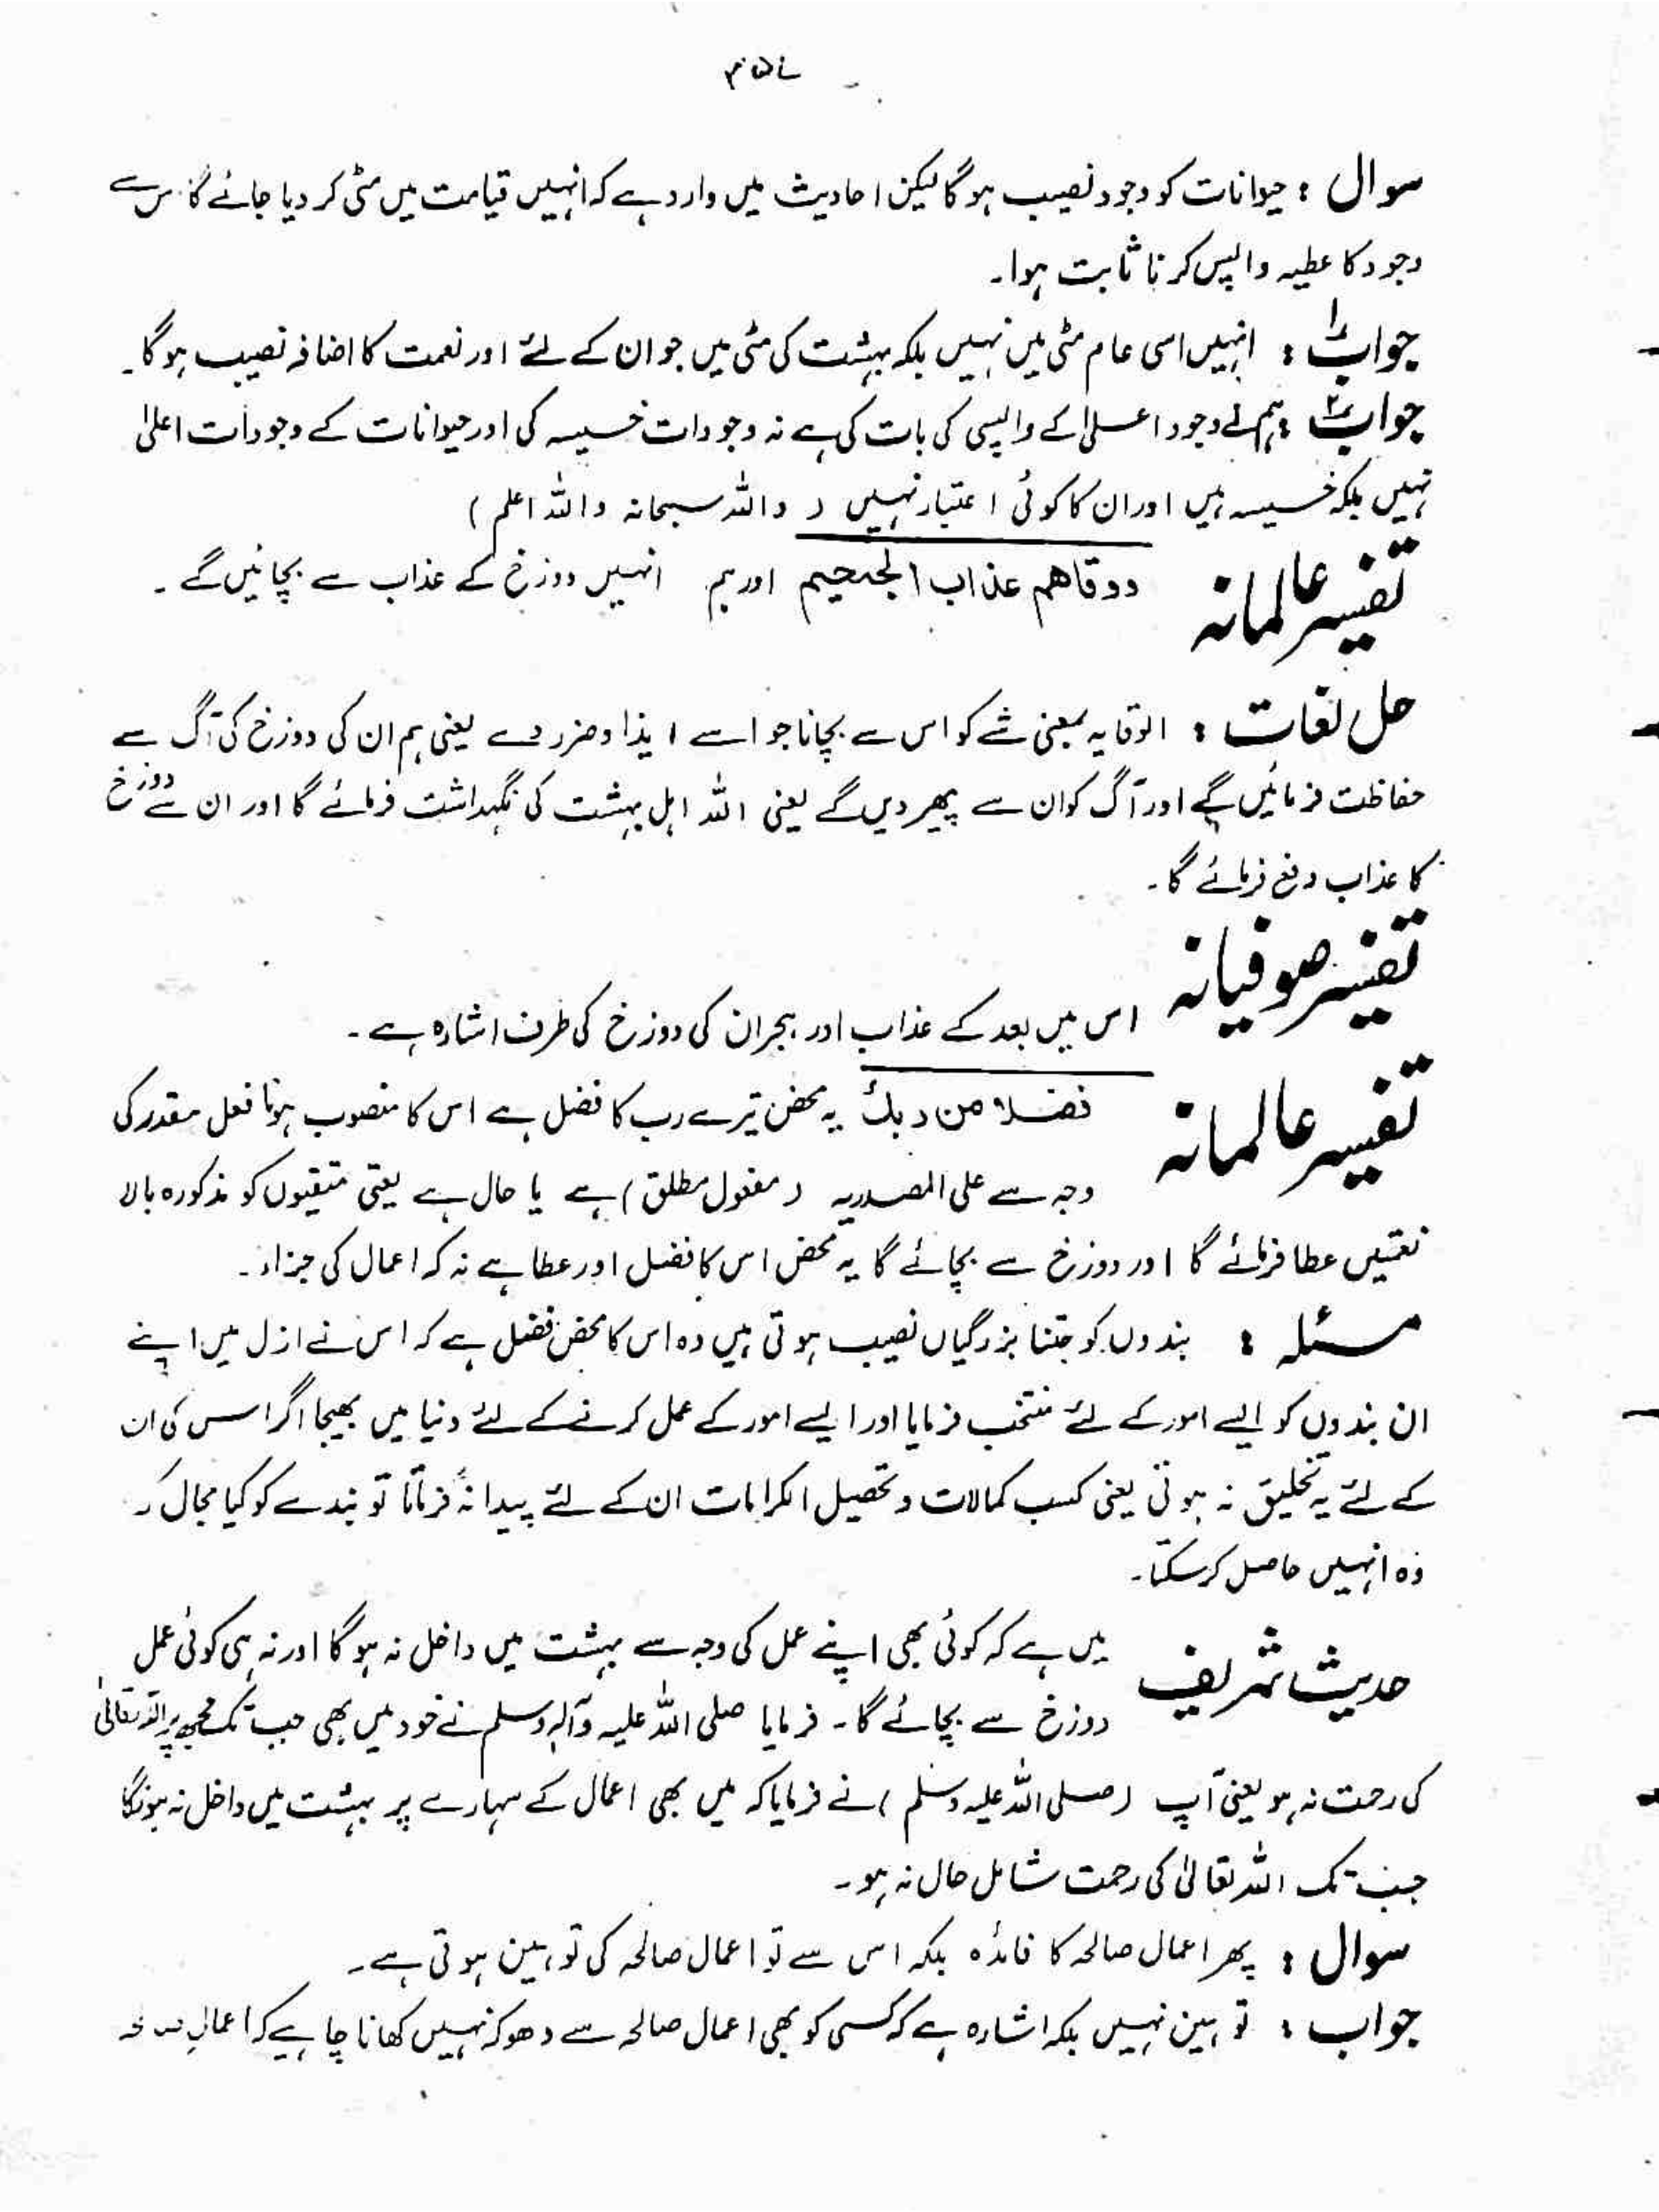 ۴۵۷
سوال : حیوانات کو وجود نصیب ہوگا لیکن احادیث میں وارد ہے کہ انہیں قیامت میں مٹی کر دیا جائے گا سے
وجود کا عطیہ واپس کرنا ثابت ہوا۔
جواب ۱ : انہیں اسی عام مٹی میں نہیں بلکہ بہشت کی مٹی میں جو ان کے لئے اور نعمت کا اضافہ نصیب ہوگا۔
جواب ۲ : ہم نے وجود اعلیٰ کے واپسی کی بات کی ہے نہ وجودات خسیسہ کی اور حیوانات کے وجودات اعلیٰ
نہیں بلکہ خسیسہ ہیں اور ان کا کوئی اعتبار نہیں ( واللہ سبحانہ واللہ اعلم )
تفسیر عالمانہ
دوقاهم عذاب الجحیم اور ہم انہیں دوزخ کے عذاب سے بچائیں گے ۔
حل لغات : الوقایہ بمعنی شے کو اس سے بچانا جو اسے ایذا و ضرر دے یعنی ہم ان کی دوزخ کی آگ سے
حفاظت فرمائیں گے اور آگ کو ان سے پھیر دیں گے یعنی اللہ اہل بہشت کی نگہداشت فرمائے گا اور ان سے دوزخ
کا عذاب دفع فرمائے گا۔
تفسیر صوفیانہ
اس میں بعد کے عذاب اور ہجران کی دوزخ کی طرف اشارہ ہے ۔
تفسیر عالمانہ
فضلا من ربک یہ محض تیرے رب کا فضل ہے اس کا منصوب ہونا فعل مقدر کی
وجہ سے علی المصدریہ ( مفعول مطلق ) ہے یا حال ہے یعنی متقیوں کو مذکورہ بالا
نعمتیں عطا فرمائے گا اور دوزخ سے بچائے گا یہ محض اس کا فضل اور عطا ہے نہ کہ اعمال کی جزاء۔
مسئلہ : بندوں کو جتنا بزرگیاں نصیب ہوتی ہیں وہ اس کا محض فضل ہے کہ اس نے ازل میں اپنے
ان بندوں کو ایسے امور کے لئے منتخب فرمایا اور ایسے امور کے عمل کرنے کے لئے دنیا میں بھیجا اگر اس کی ان
کے لئے یہ تخلیق نہ ہوتی یعنی کسب کمالات و تحصیل الکرامات ان کے لئے پیدا نہ فرماتا تو بندے کو کیا مجال کہ
وہ انہیں حاصل کر سکتا۔
حدیث شریف
میں ہے کہ کوئی بھی اپنے عمل کی وجہ سے بہشت میں داخل نہ ہوگا اور نہ ہی کوئی عمل
دوزخ سے بچائے گا۔ فرمایا صلی اللہ علیہ وآلہ وسلم نے خود میں بھی جب تک مجھ پر اللہ تعالیٰ
کی رحمت نہ ہو یعنی آپ (صلی اللہ علیہ وسلم ) نے فرمایا کہ میں بھی اعمال کے سہارے پر بہشت میں داخل نہ ہونگا
جب تک اللہ تعالیٰ کی رحمت شامل حال نہ ہو۔
سوال : پھر اعمال صالحہ کا فائدہ بلکہ اس سے تو اعمال صالحہ کی توہین ہوتی ہے۔
جواب : توہین نہیں بلکہ اشارہ ہے کہ کسی کو بھی اعمال صالحہ سے دھوکہ نہیں کھانا چاہیے کہ اعمال